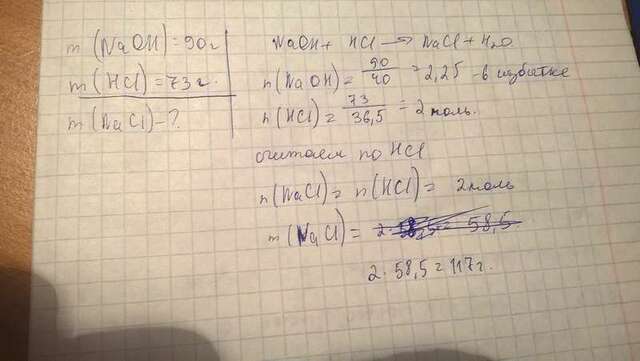 m (NaOH) = 90г
m (HCl) = 73г.
m (NaCl) - ?
NaOH + HCl → NaCl + H₂O
n (NaOH) = 90/40 = 2,25 - в избытке
n (HCl) = 73/36,5 = 2 моль.
считаем по HCl
n (NaCl) = n (HCl) = 2 моль
m (NaCl) =
2 · 58,5 = 117г.